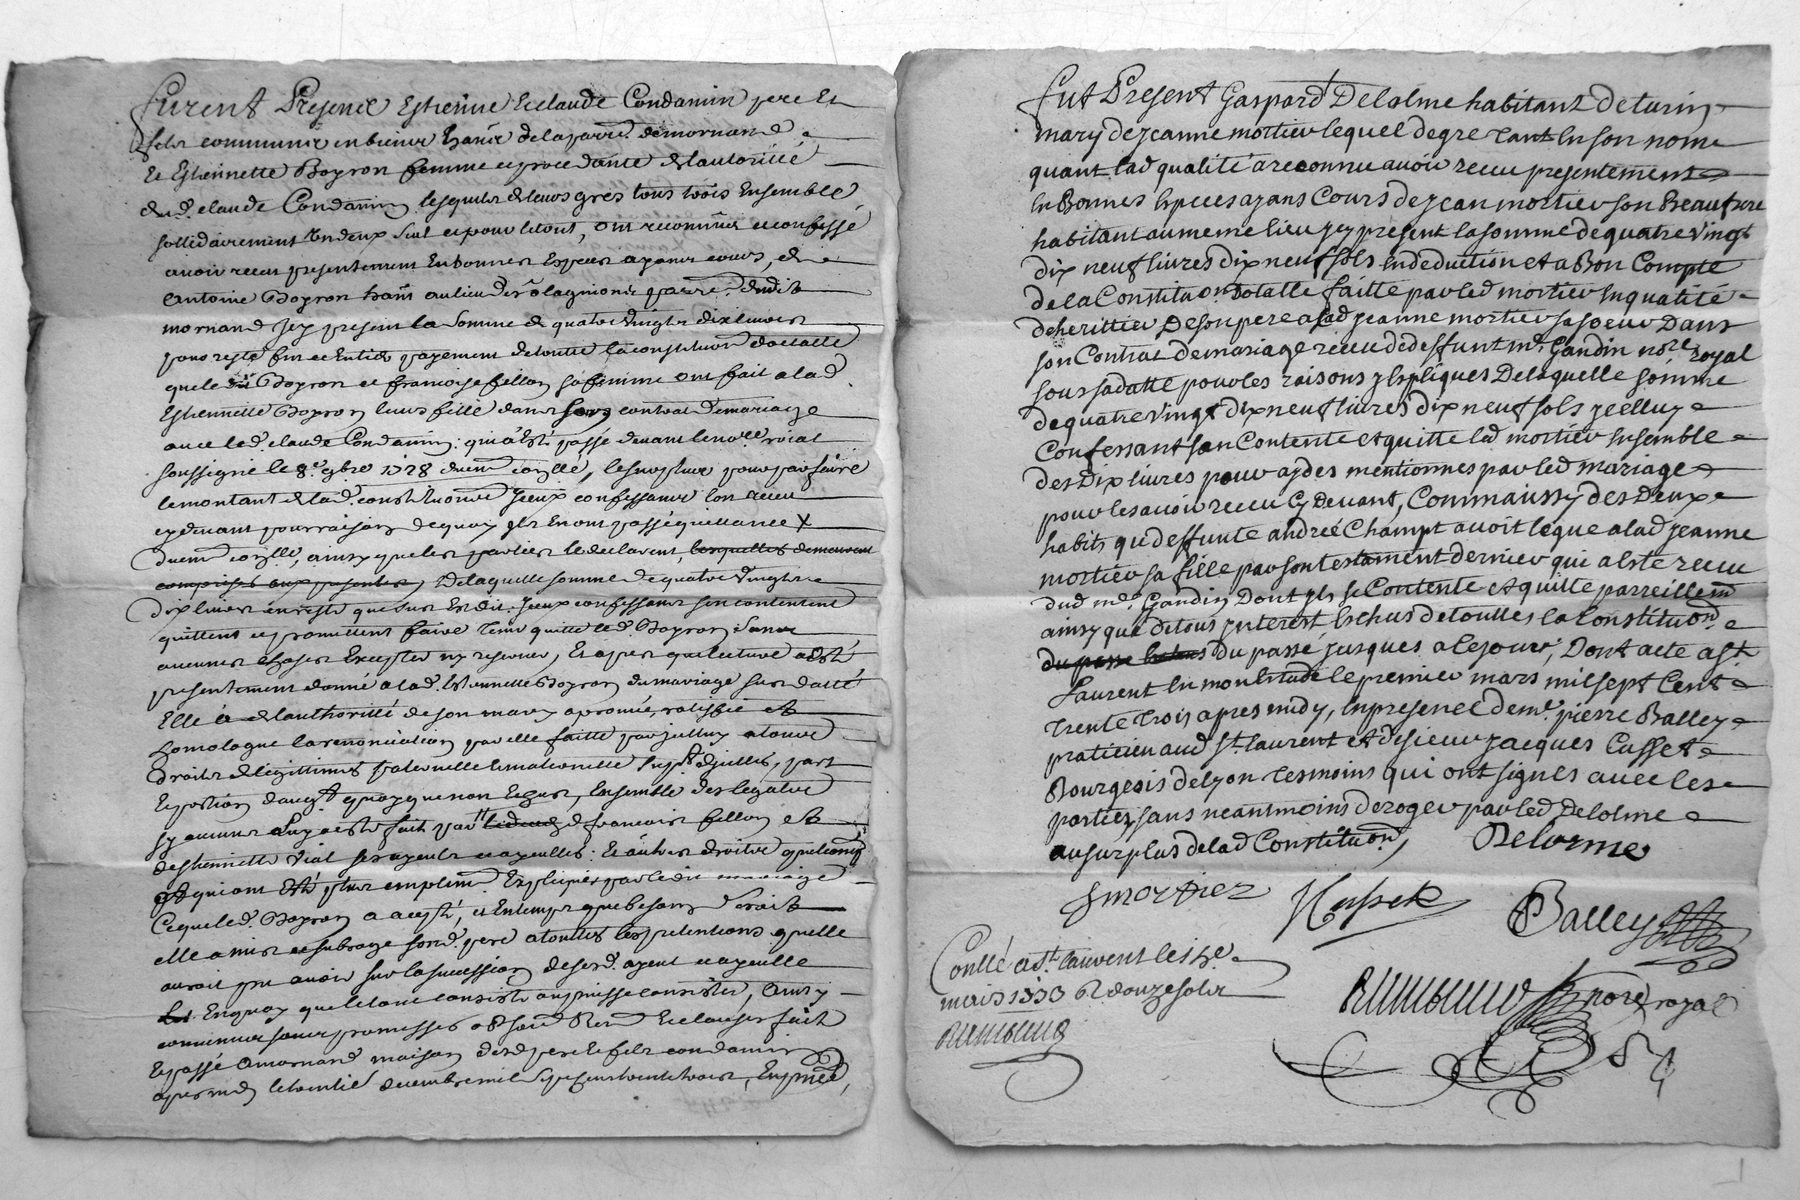 furent Presence Estienne & claude Condamin pere Et
fils communier en biens hans de la parre de mornand
Et Estiennette Boyron femme et procedante de lautorité
dud. claude Condamin lesquels de leurs gres tous trois Ensemble
sollidairement lun deux seul et pour letout, ont reconnus et confessé
avoir receu presentement En bonnes Especes ayants cours, de
antoine Boyron hans au lieu de parre dudit
mornand Jcy present la somme de quatre vingts dix livres
pour reste fin et Entier payement de toutte la constitution
que led. Boyron et francoise fillon sa femme ont fait a lad.
Estiennette Boyron leurs fille dans son contrat de mariage
avec led. claude Condamin qui a Esté passé devant le no.re roial
soussigné le 8.e 9bre 1728 les surplus pour parfaire
le montant de lad. constitution Jceux confessants lon receu
cy devant pour raison de quoy ils En ont passé quittance X
ainsy que les parties le declarent, lesquelles demeurent
comprises aux presentes, De laquelle somme de quatre vingts
Dix livres En reste que sus Est dit. Jceux confessants se contentent
quittent et promettent faire tenir quitte led. Boyron
aucunes choses Excepter ny reserver, Et apres que lecture a Esté
presentement donné a lad. Estiennette Boyron du mariage sus datté
Elle de lauthorité de son mary aprouvé, ratiffie et
homologue la renonciation par elle faitte par jcelluy a tous
droits de legitimes paternelle & maternelle part
Et portion quoyque non Echus, Ensemble des legats
sy aucuns luy a esté fait par francois fillon et
destiennette vial ses ayeuls et ayeulles Et autres droits quelconq
qui ont Esté plus amplem. Expliqués par ledit mariage
Ceque led. Boyron a acepté, et En temps que besoin seroit
elle a mis et subroge sond. pere a touttes les pretentions quelle
auroit pu avoir sur la succession de sesd. ayeul et ayeulle
En quoy que le tout consiste ou puisse consister, Ainsy
convenu sous promesses Et clauses fait
Et passé a mornand maison desd. pere & fils condamin
apres midy le trentie decembre mil sept cent trente trois, En pnce,
fut Present Gaspard Delolme habitant de turin
mary de jeanne mortier lequel de gre tant En son nom
quant lad qualité a reconnu avoir receu presentement
En Bonnes Especes ayans Cours de jean mortier son beaufrere
habitant au meme lieu jcy present la somme de quatre vingt
dix neuf livres dix neuf sols En deduction et a Bon Compte
de la Constituon Dotalle faitte par led mortier En qualité
de herittier De son pere a lad jeanne mortier sa soeur Dans
son Contrat de mariage receu de deffunt me. Gandin no.re royal
sous sa datte pour les raisons y Expliquées De laquelle somme
de quatre vingt dix neuf livres dix neuf sols jcelluy
Confessant son Contente et quitte led mortier Ensemble
des Dix livres pour aydes mentionnes par led mariage
pour les avoir receu Cy Devant, Comm aussy des Deux
habits que deffunte andreé Champt avoit legué a lad jeanne
mortier sa fille par son testament dernier qui a Este receu
dud me. Gandin Dont jls se Contente et quitte parreillem
ainsy que de tous jnterest Eschus de touttes la Constituon
du passé du passé jusques a le jour, Dont acte a st.
Laurent En mon Etude le premier mars mil sept Cent
trente trois apres midy, En presence de me. pierre Balley
praticien aud st. laurent et de sieur jacques Cusset
Bourgeois de lyon tesmoins qui ont signes avec les
parties, sans neantmoins deroger par led Delolme
au surplus de lad Constituon, Delorme
J mortier Balley
Conllé a st. laurent le
mars 1733 R. douze sols
nore royal